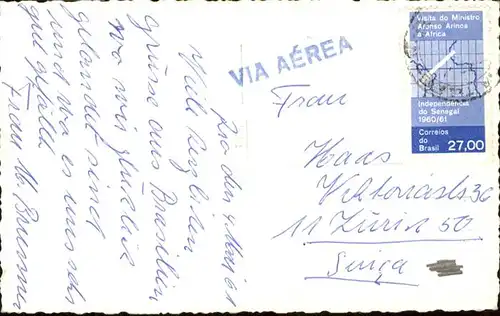 Rio den 4. Mai 61
Viele herzlichen
Grüsse aus Brasilien
wo wir glücklich
gelandet sind
und wo es uns sehr
gut gefällt
Frau M. Brunner
VIA AÉREA
Visita do Ministro
Afonso Arinos
a Africa
Independência
do Senegal
1960/61
Correios
do
Brasil 27,00
Frau
Haas
11 Zürich 50
Suiça